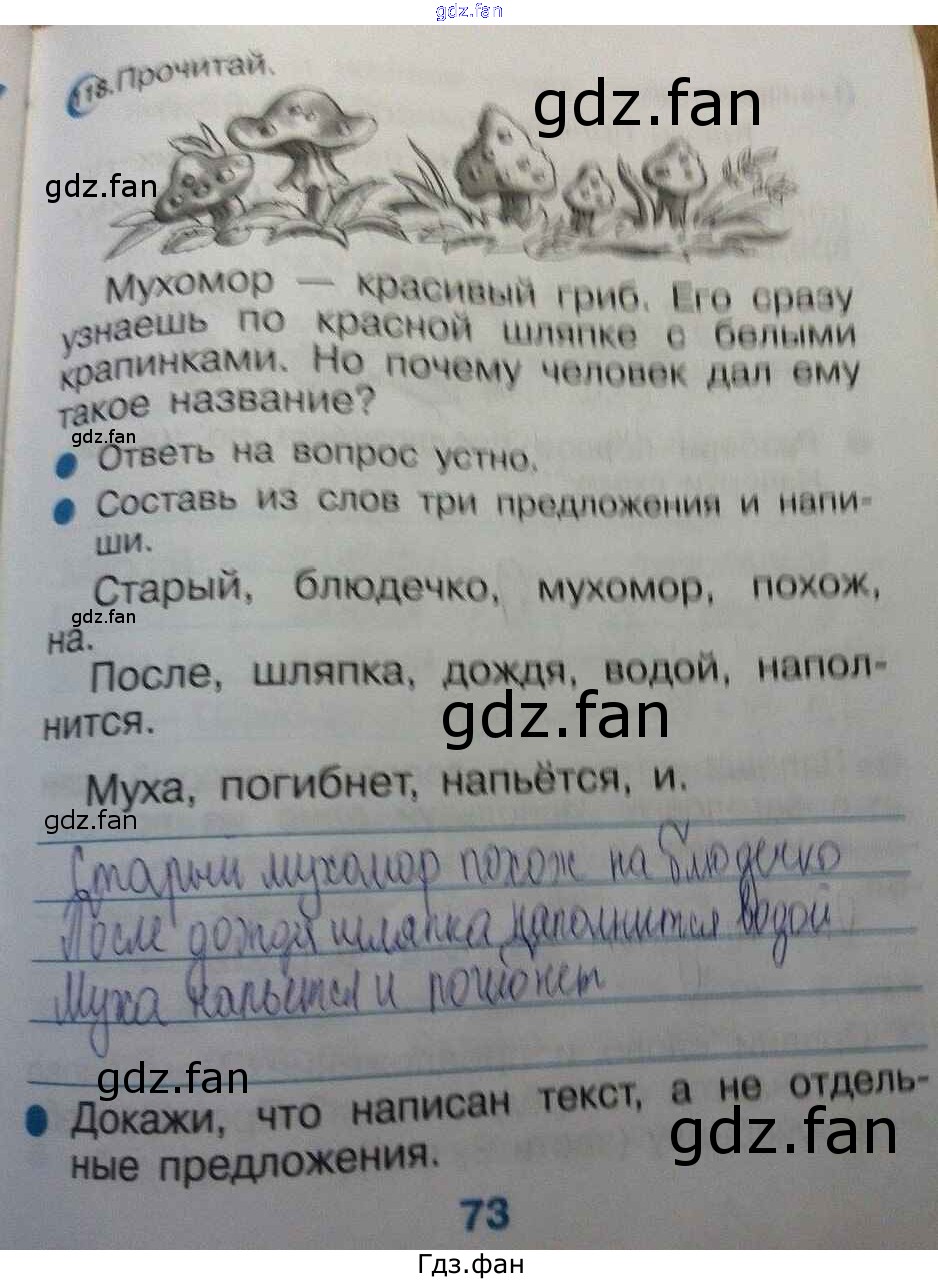 gdz.fan
118. Прочитай.
gdz.fan
gdz.fan
Мухомор — красивый гриб. Его сразу
узнаешь по красной шляпке с белыми
крапинками. Но почему человек дал ему
такое название?
gdz.fan
Ответь на вопрос устно.
Составь из слов три предложения и напи-
ши.
Старый, блюдечко, мухомор, похож,
gdz.fan
на.
После, шляпка, дождя, водой, напол-
gdz.fan
нится.
Муха, погибнет, напьётся, и.
gdz.fan
Старый мухомор похож на блюдечко
После дождя шляпка наполнится водой
Муха напьется и погибнет
gdz.fan
Докажи, что написан текст, а не отдель-
gdz.fan
ные предложения.
73
Гдз.фан